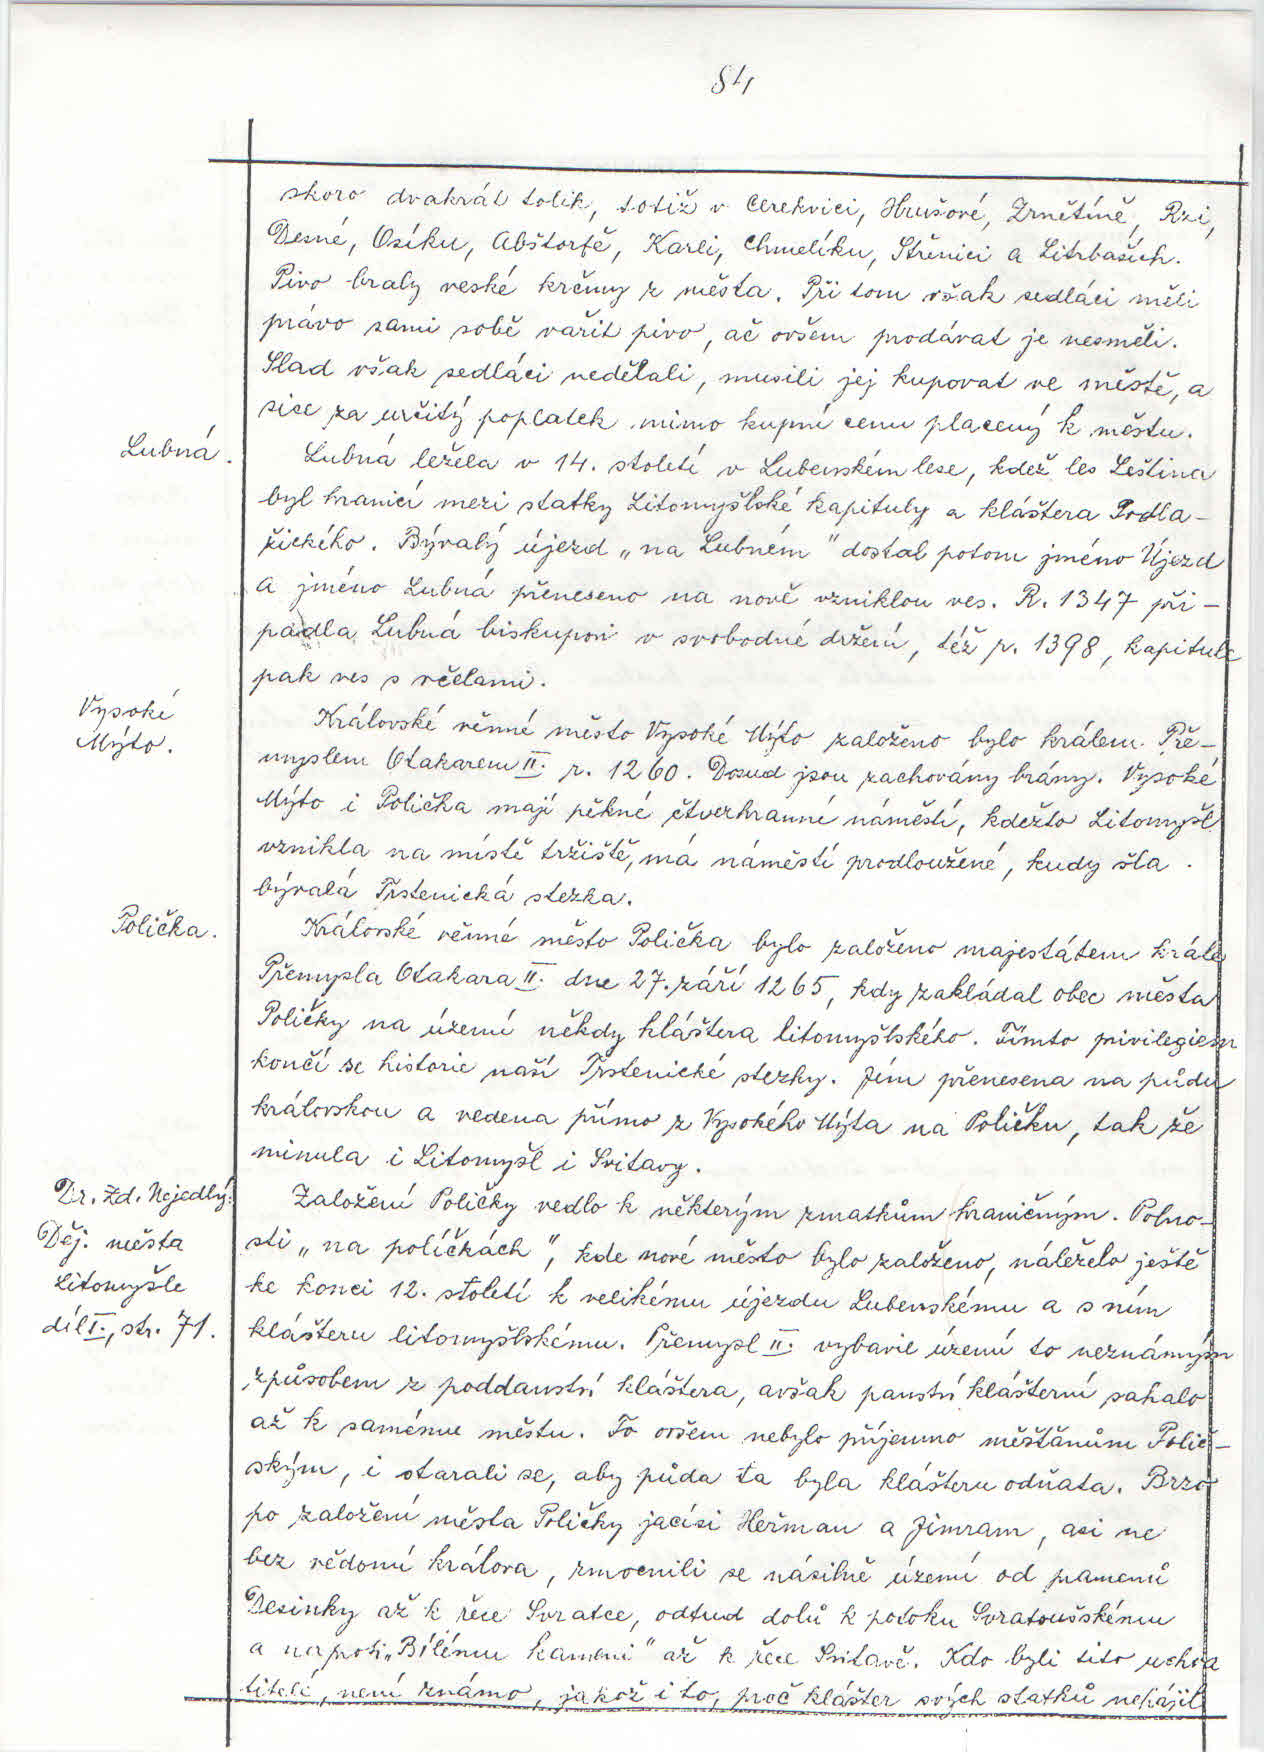 84
skoro dvakrát tolik, totiž v Cerekvici, Hrušové, Zrnětíně, Rzi,
Desné, Osíku, Abštorfě, Karli, Chmelíku, Střenici a Litrbaších.
Pivo braly veské krčmy z města. Při tom však sedláci měli
právo sami sobě vařit pivo, ač ovšem prodávat je nesměli.
Slad však sedláci nedělali, musili jej kupovat ve městě, a
sice za určitý poplatek mimo kupní cenu placený k městu.
Lubná.
Lubná ležela v 14. století v Lubenském lese, kdež les Leština
byl hranicí mezi statky Litomyšlské kapituly a kláštera Podla-
žického. Bývalý újezd „na Lubném" dostal potom jméno Újezd
a jméno Lubná přeneseno na nově vzniklou ves. R. 1347 při-
padla Lubná biskupovi v svobodné držení, též r. 1398, kapitule
pak ves s včelami.
Vysoké
Mýto.
Královské věnné město Vysoké Mýto založeno bylo králem Pře-
myslem Otakarem II. r. 1260. Dosud jsou zachovány brány. Vysoké
Mýto i Polička mají pěkné čtverhranné náměstí, kdežto Litomyšl
vznikla na místě tržiště, má náměstí prodloužené, kudy šla
bývalá Trstenická stezka.
Polička.
Královské věnné město Polička bylo založeno majestátem krále
Přemysla Otakara II. dne 27. září 1265, kdy zakládal obec města
Poličky na území někdy kláštera litomyšlského. Tímto privilegiem
končí se historie naší Trstenické stezky. Jím přenesena na půdu
královskou a vedena přímo z Vysokého Mýta na Poličku, tak že
minula i Litomyšl i Svitavy.
Dr. Zd. Nejedlý:
Děj. města
Litomyšle
díl I., str. 71.
Založení Poličky vedlo k některým zmatkům hraničným. Polno-
sti „na políčkách", kde nové město bylo založeno, náleželo ještě
ke konci 12. století k velikému újezdu Lubenskému a s ním
klášteru litomyšlskému. Přemysl II. vybavil území to neznámým
způsobem z poddanství kláštera, avšak panství klášterní sahalo
až k samému městu. To ovšem nebylo příjemno měšťanům Polič-
ským, i starali se, aby půda ta byla klášteru odňata. Brzo
po založení města Poličky jacísi Heřman a Jimram, asi ne
bez vědomí králova, zmocnili se násilně území od pramenů
Desinky až k řece Svratce, odtud dolů k potoku Svratoušskému
a naproti „Bílému kameni" až k řece Svitavě. Kdo byli tito uchva
titelé, není známo, jakož i to, proč klášter svých statků nehájil